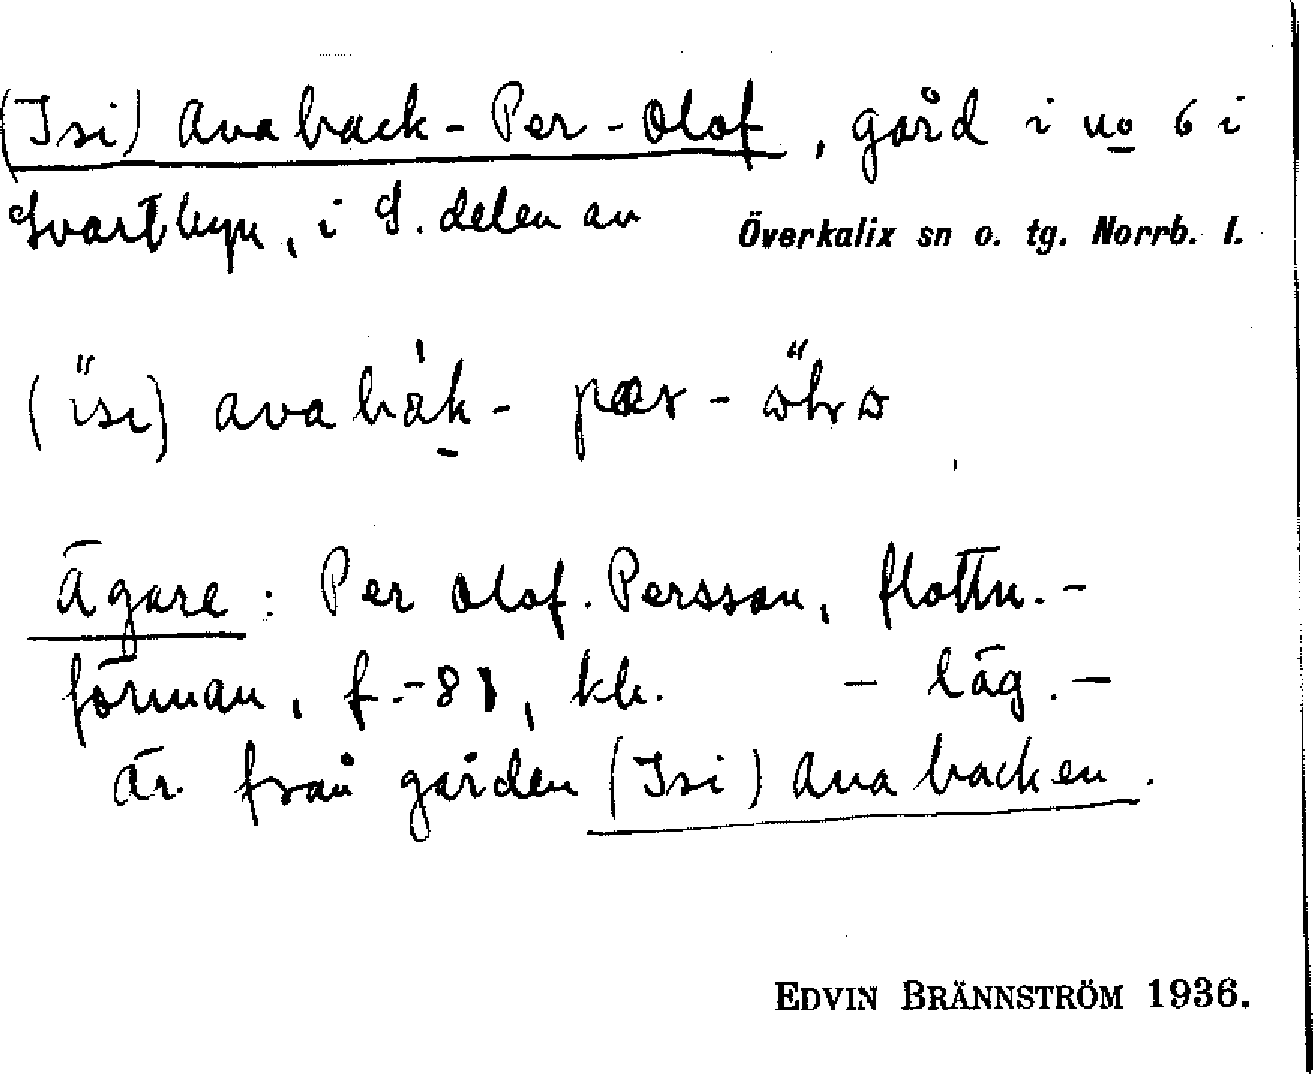 (Isi) Avaback-Per-Olof, gård i no 6 i
Svartbyn, i S. delen av Överkalix sn o. tg. Norrb. l.
Ägare: Per Olof Persson, flottn.-
förman, f.-81, kb. – läg. –
är från gården (Isi) Avabacken.
EDVIN BRÄNNSTRÖM 1936.